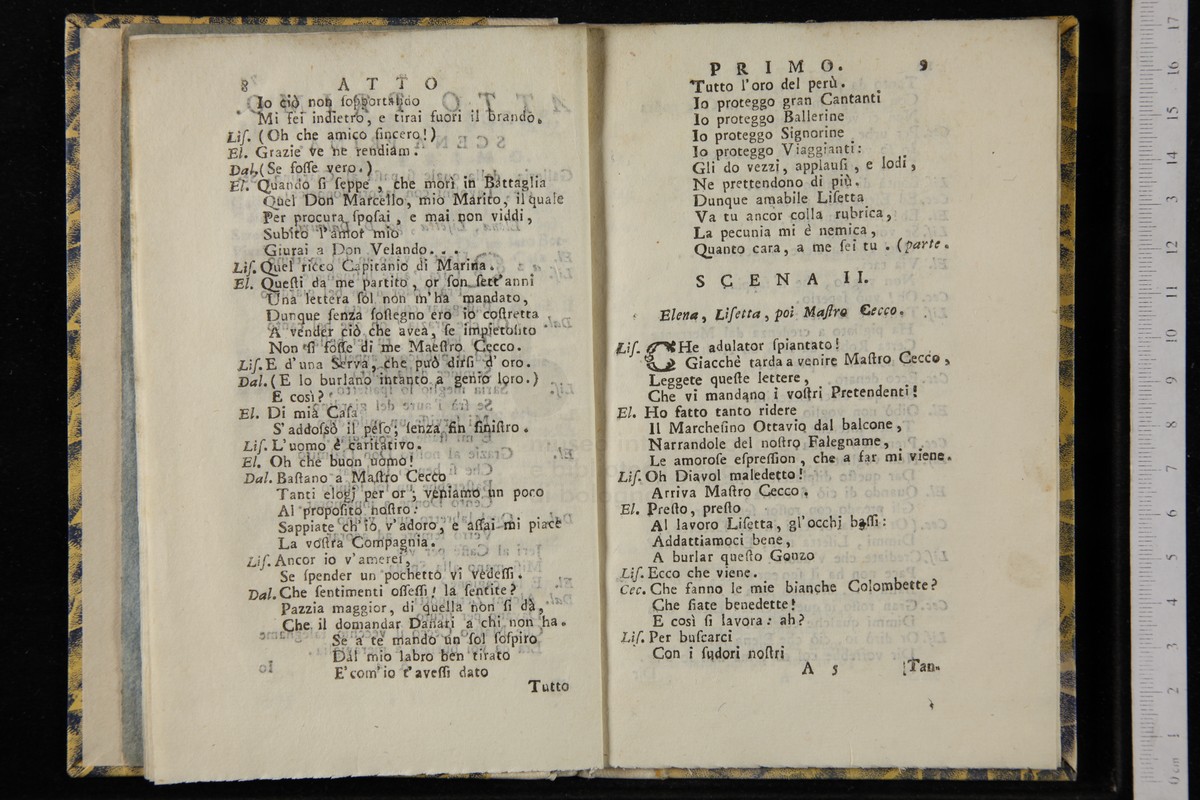 8 ATTO
Io ciò non ſopportando
Mi fei indietro, e tirai fuori il brando.
Liſ. (Oh che amico ſincero!)
El. Grazie ve ne rendiam.
Dal. (Se foſſe vero.)
El. Quando ſi ſeppe, che morì in Battaglia
Quel Don Marcello, mio Marito, il quale
Per procura ſpoſai, e mai non viddi,
Subito l'amor mio
Giurai a Don Velando....
Liſ. Quel ricco Capitanio di Marina.
El. Queſti da me partito, or ſon ſett'anni
Una lettera ſol non m'ha mandato,
Dunque ſenza ſoſtegno ero io coſtretta
A vender ciò che avea, ſe impietoſito
Non ſi foſſe di me Maeſtro Cecco.
Liſ. E d'una Serva, che può dirſi d'oro.
Dal. (E lo burlano intanto a genio loro.)
E così?
El. Di mia Caſa
S'addoſsò il peſo, ſenza fin ſiniſtro.
Liſ. L'uomo è caritativo.
El. Oh che buon uomo!
Dal. Baſtano a Maſtro Cecco
Tanti elogj per or; veniamo un poco
Al propoſito noſtro:
Sappiate ch'io v'adoro, e aſſai mi piace
La voſtra Compagnia.
Liſ. Ancor io v'amerei,
Se ſpender un pochetto vi vedeſſi.
Dal. Che ſentimenti oſſeſſi! la ſentite?
Pazzia maggior, di quella non ſi dà,
Che il domandar Danari a chi non ha.
Se a te mando un ſol ſoſpiro
Dal mio labro ben tirato
E' com'io t'aveſſi dato
Tutto
PRIMO. 9
Tutto l'oro del perù.
Io proteggo gran Cantanti
Io proteggo Ballerine
Io proteggo Signorine
Io proteggo Viaggianti:
Gli do vezzi, applauſi, e lodi,
Ne prettendono di più.
Dunque amabile Liſetta
Va tu ancor colla rubrica,
La pecunia mi è nemica,
Quanto cara, a me ſei tu. (parte.
SCENA II.
Elena, Liſetta, poi Maſtro Cecco.
Liſ. CHe adulator ſpiantato!
Giacchè tarda a venire Maſtro Cecco,
Leggete queſte lettere,
Che vi mandano i voſtri Pretendenti!
El. Ho fatto tanto ridere
Il Marcheſino Ottavio dal balcone,
Narrandole del noſtro Falegname,
Le amoroſe eſpreſſion, che a far mi viene.
Liſ. Oh Diavol maledetto!
Arriva Maſtro Cecco.
El. Preſto, preſto
Al lavoro Liſetta, gl'occhj baſſi:
Addattiamoci bene,
A burlar queſto Gonzo
Liſ. Ecco che viene.
Cec. Che fanno le mie bianche Colombette?
Che ſiate benedette!
E così ſi lavora: ah?
Liſ. Per buſcarci
Con i ſudori noſtri
A 5 Tan-